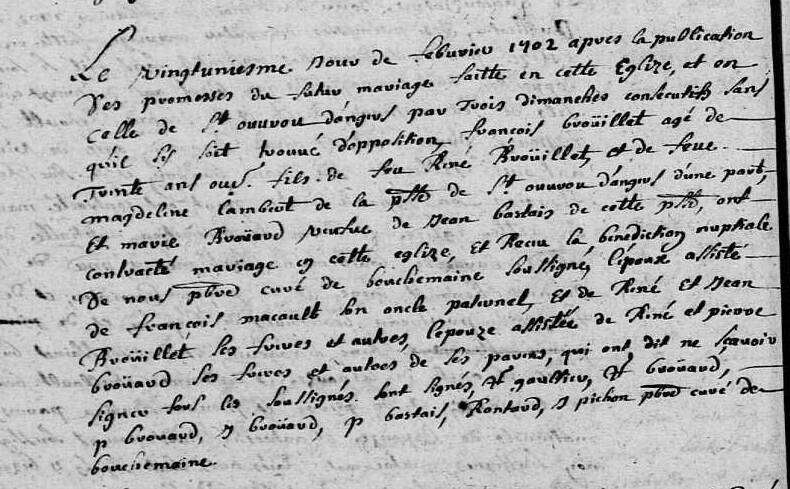 Le vingtuniesme Jour de febuvier 1702 apres la publication
Des promesses du futur mariage faitte en cette Eglize, et en
Celle de St ouvrou d'angers par Trois dimanches consecutifs sans
quil sy soit trouvé d'opposition, françois broüillet agé de
Trente ans ou fils de feu René Broüillet, et de feue
magdeline lambert de la psse de St ouvrou d'angers d'une part,
Et marie Broüard veufve de Jean bastais de cette psse, ont
contracté mariage en cette eglize, et Receu la benediction nuptiale
De nous pbre curé de bouchemaine soussigné, l'epoux assisté
de françois macault son oncle paternel, et de René et Jean
Broüillet ses freres et autres, l'epouze assistée de René et pierre
broüard ses freres et autres de ses parens, qui ont dit ne sçavoir
signer fors les soussignés. sont signés, gaultier, broüard,
p brouard, J broüard, p bastais, J pichon pbre curé de
bouchemaine.